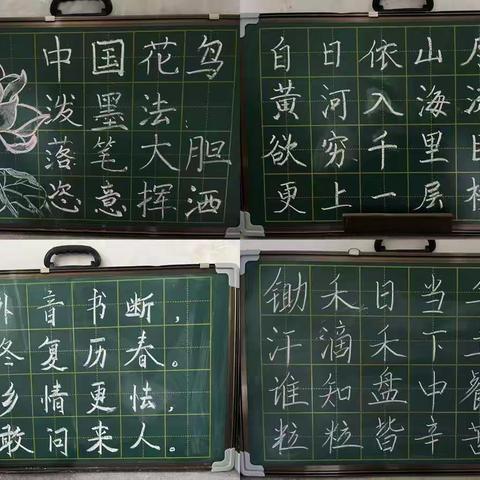 中国花鸟
泼墨法：
落笔大胆
恣意挥洒
白日依山
黄河入海
欲穷千里目
更上一层
外音书断，
冬复历春。
乡情更怯，
敢问来人。
锄禾日当午
汗滴禾下土
谁知盘中餐
粒粒皆辛苦